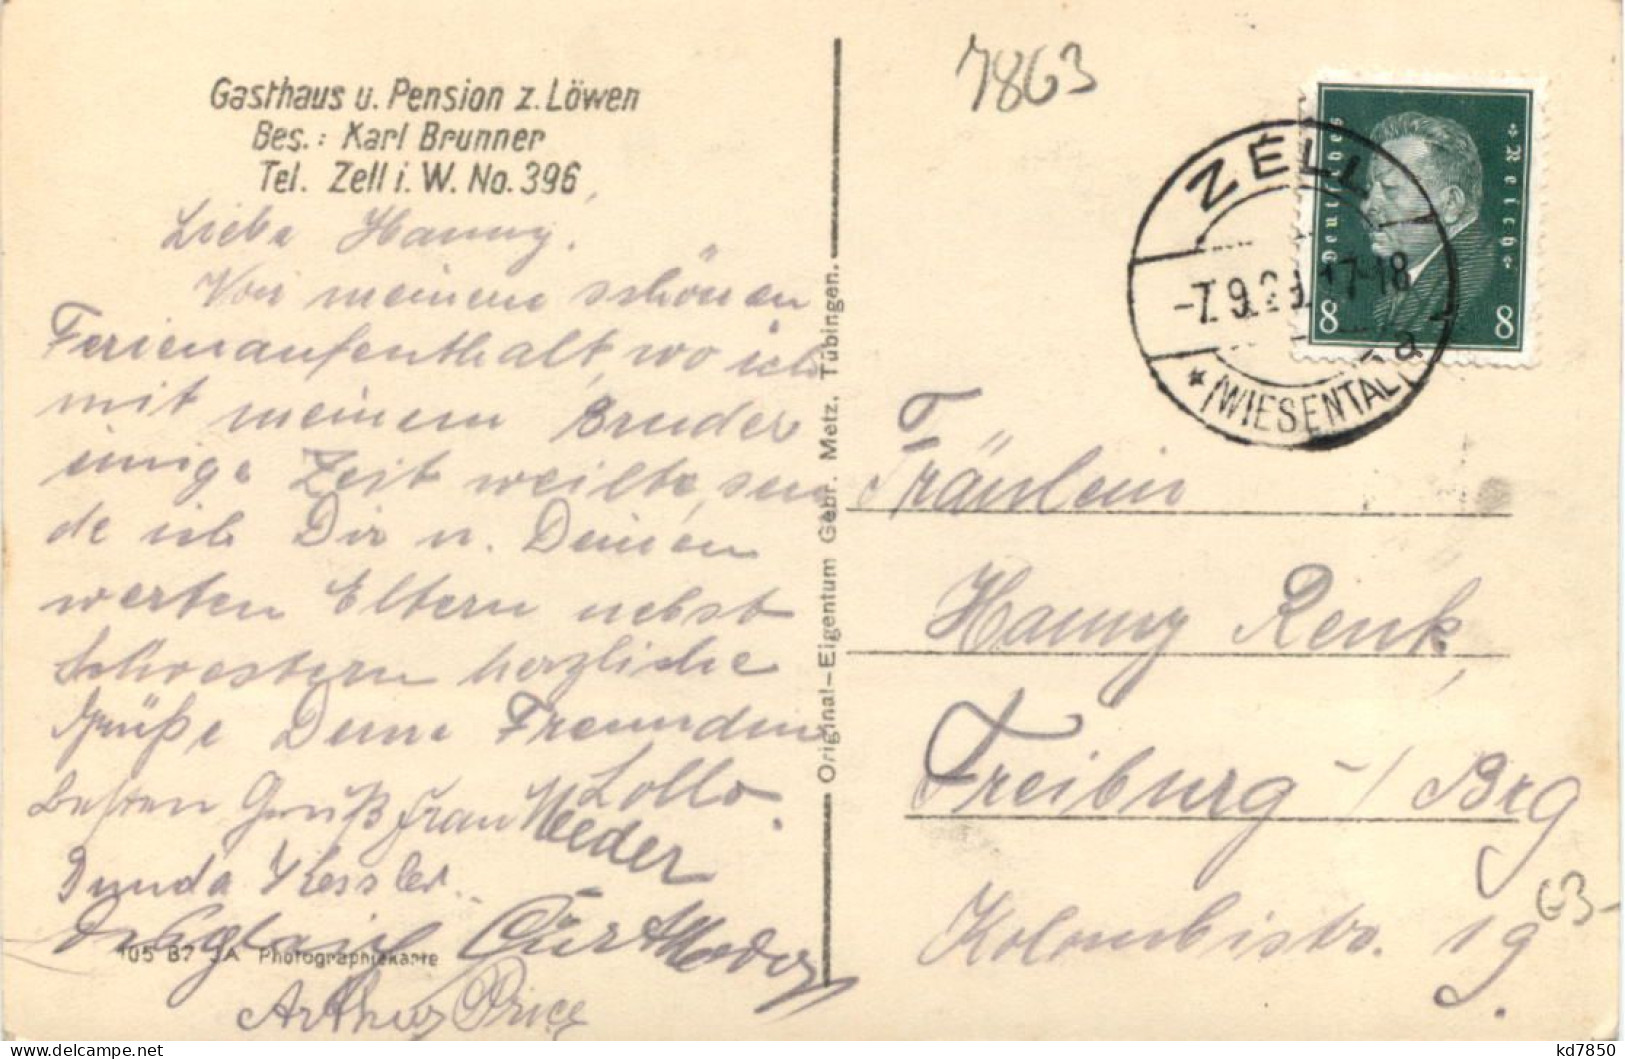 Gasthaus u. Pension z. Löwen
Bes.: Karl Brunner
Tel. Zell i. W. No. 396
Liebe Hanny.
Von meinem schönen
Ferienaufenthalt, wo ich
mit meinem Bruder
einige Zeit weilte, sen
de ich Dir u. Deinen
werten Eltern nebst
Schwestern herzliche
Grüße Deine Freundin
Lollo.
besten Gruß Frau Weeder
Kessler.
Arthur Price
105 B7 JA Photographiekarte
Original-Eigentum Gebr. Metz, Tübingen.
7863
ZELL
-7.9.29.17-18
a
* (WIESENTAL)
Deutsches
Reich
8 8
Fräulein
Hanny Renk,
Freiburg -/ Brg
Kolombistr. 19.
63-
kd7850